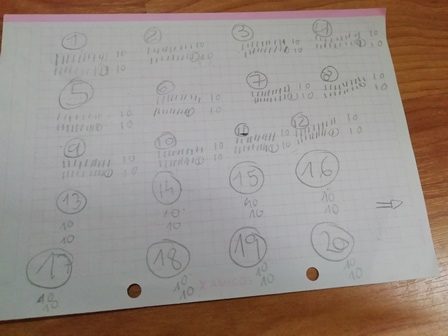 1 2 3 4
10 10 10 10
10 10 10 10
5 6 7 8
10 10 10 10
10 10 10 10
9 10 11 12
10 10 10 10
10 10 10 10
13 14 15 16
10 10 10 10
10 10 10 10
17 18 19 20
10 10 10 10
10 10 10 10